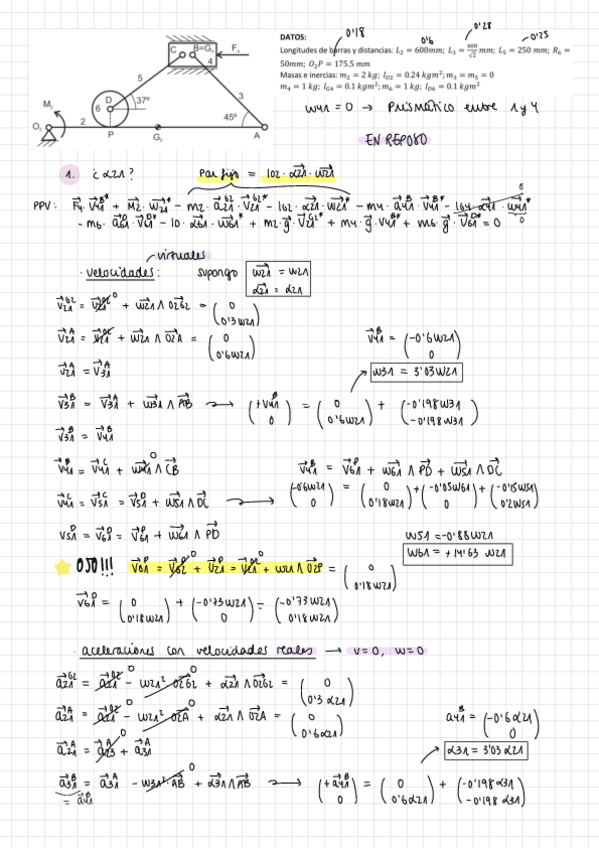 DATOS:
Longitudes de barras y distancias: L₂ = 600mm; L₃ = 400/√2 mm; L₅ = 250 mm; R₆ =
50mm; O₂P = 175.5 mm
Masas e inercias: m₂ = 2 kg; I_O2 = 0.24 kgm²; m₃ = m₅ = 0
m₄ = 1 kg; I_G4 = 0.1 kgm²; m₆ = 1 kg; I_G6 = 0.1 kgm²
0'18
0'6
0'28
0'25
C B=G₄
4
F₄
5
D
6
37°
3
M₂
45°
O₂
2
P
G₂
A
ω41 = 0 → Prismático entre 1 y 4
EN REPOSO
1. ¿ α21 ?
Par fijo = I02 · α21 · ω21
PPV: F4 · V41^B* + M2 · ω21* - m2 · a21^G2 · V21^G2* - I02 · α21 · ω21* - m4 · a41^B · V41^B* - I64 · α41 · ω41*
0
0
- m6 · a61^D · V61^D* - I0 · α61 · ω61* + m2 · g · V21^G2* + m4 · g · V41^B* + m6 · g · V61^D* = 0
virtuales
· velocidades: supongo ω21 = ω21
α21 = α21
V21^G2 = V21^O2 0 + ω21 ∧ O2G2 = (0 0'3ω21)
V21^A = V21^O2 + ω21 ∧ O2A = (0 0'6ω21)
V41^B = (-0'6ω21 0)
V21^A = V31^A
ω31 = 3'03ω21
V31^B = V31^A + ω31 ∧ AB → (+V41^B 0) = (0 0'6ω21) + (-0'198ω31 -0'198ω31)
V31^B = V41^B
V41^B = V41^C + ω41 0 ∧ CB
V41^B = V61^P + ω61 ∧ PD + ω51 ∧ DC
V41^C = V51^C = V51^D + ω51 ∧ DC → (-0'6ω21 0) = (0 0'18ω21) + (-0'05ω61 0) + (-0'15ω51 0'2ω51)
V51^D = V61^D = V61^P + ω61 ∧ PD
ω51 = -0'88ω21
ω61 = +14'63 ω21
OJO!!! V61^P = V62^P 0 + V21^P = V21^O2 0 + ω21 ∧ O2P = (0 0'18ω21)
V61^D = (0 0'18ω21) + (-0'73ω21 0) = (-0'73ω21 0'18ω21)
· aceleraciones con velocidades reales → v=0, ω=0
a21^G2 = a21^O2 0 - ω21² O2G2 0 + α21 ∧ O2G2 = (0 0'3 α21)
a21^A = a21^O2 0 - ω21² O2A 0 + α21 ∧ O2A = (0 0'6α21)
a41^B = (-0'6α21 0)
a21^A = a23^A 0 + a31^A
α31 = 3'03 α21
a31^B = a31^A - ω31² AB 0 + α31 ∧ AB → (+a41^B 0) = (0 0'6α21) + (-0'198α31 -0'198 α31)
= a41^B